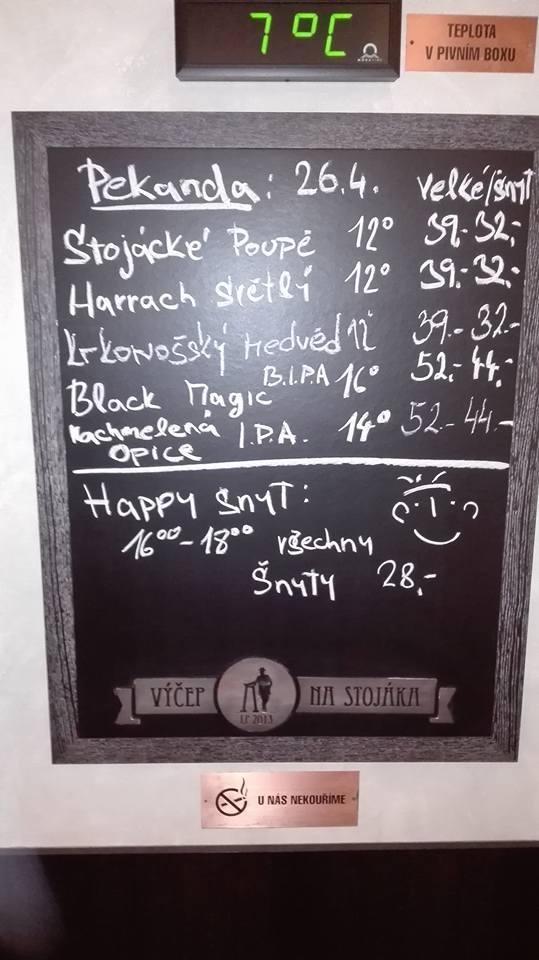 7°C
TEPLOTA
V PIVNÍM BOXU
Pekanda: 26.4. velké/šnyt
Stojácké Poupě 12° 39.- 32.-
Harrach světlý 12° 39.- 32.-
Krkonošský medvěd 12° 39.- 32.-
Black Magic B.I.PA 16° 52.- 44.-
Nachmelená I.P.A. 14° 52.- 44.-
OPICE
Happy šnyt:
16⁰⁰-18⁰⁰ všechny
Šnyty 28.-
VÝČEP NA STOJÁKA
LP 2013
U NÁS NEKOUŘÍME